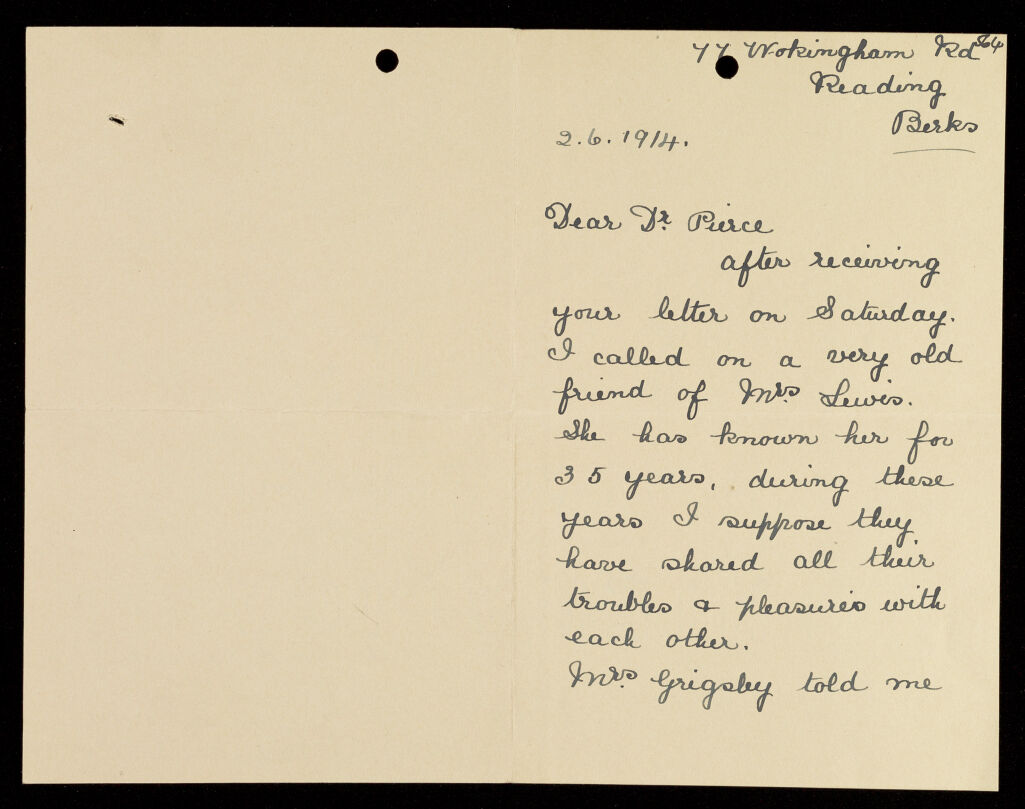 64
77 Wokingham Rd
Reading
Berks
2.6.1914.
Dear Dr. Pierce
after receiving
your letter on Saturday.
I called on a very old
friend of Mrs. Lewis.
She has known her for
35 years, during these
years I suppose they
have shared all their
troubles & pleasures with
each other.
Mrs. Grigsby told me